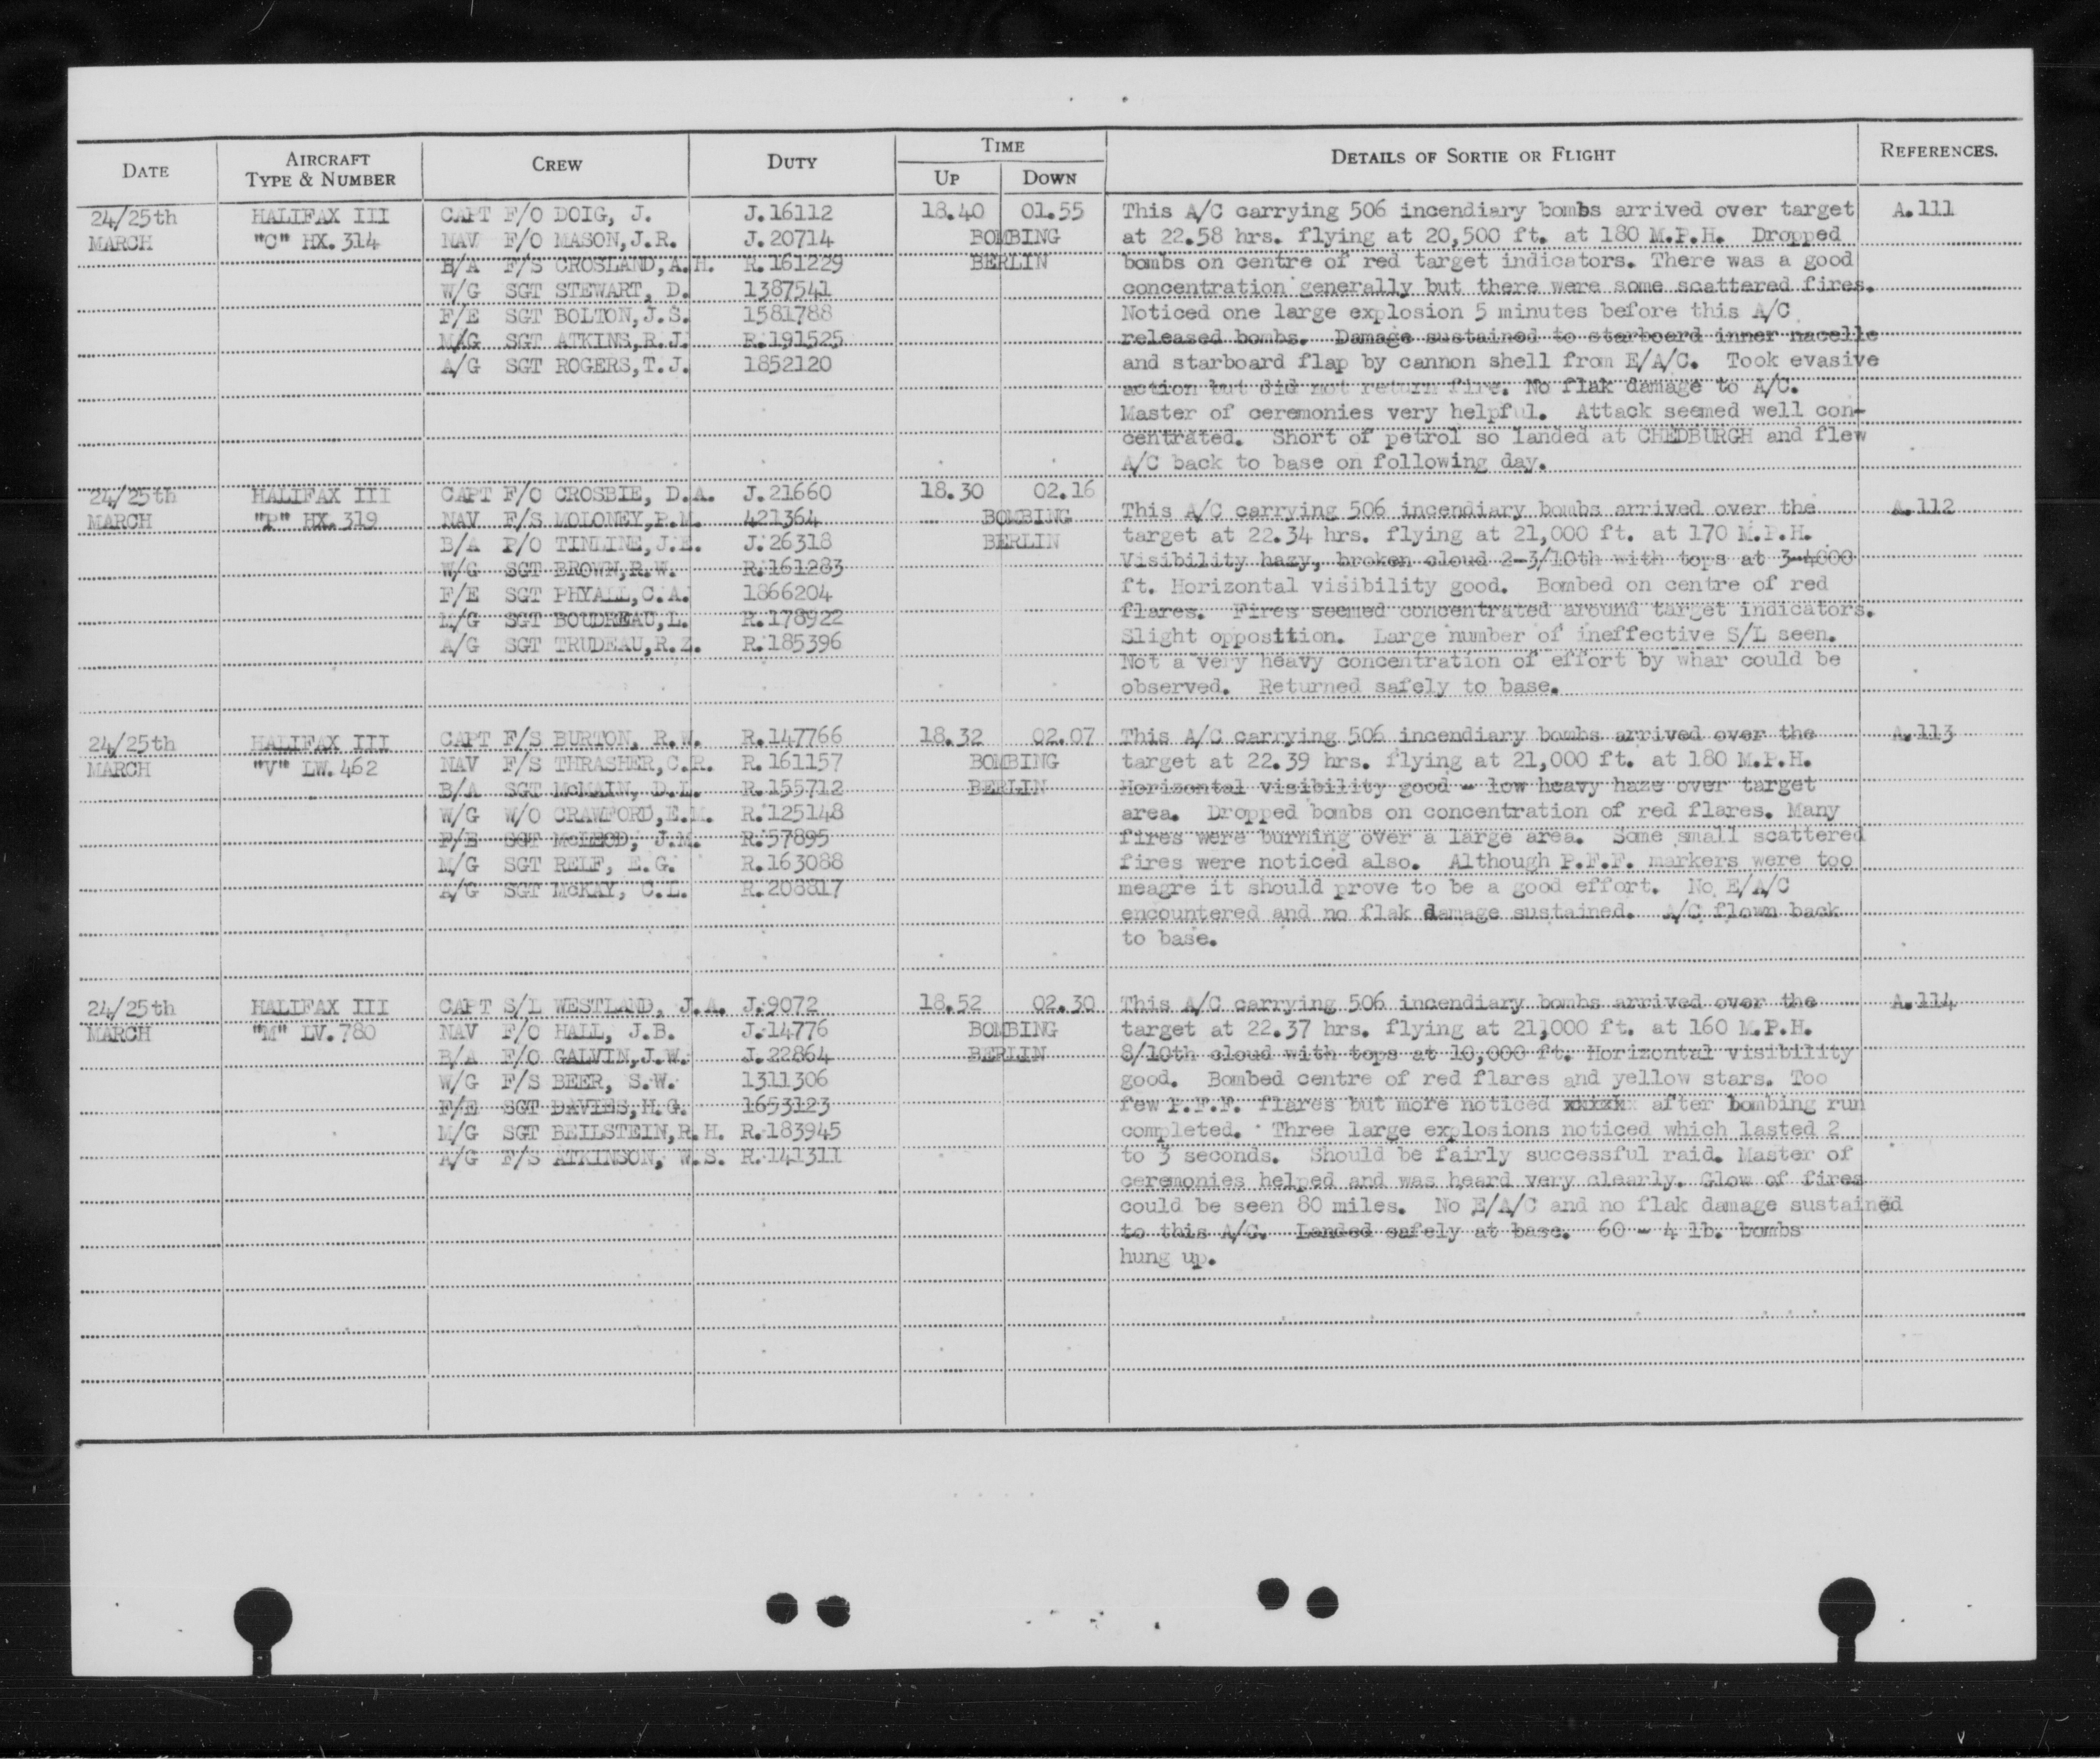 DATE AIRCRAFT TYPE & NUMBER CREW DUTY TIME UP DOWN DETAILS OF SORTIE OR FLIGHT REFERENCES.
24/25th HALIFAX III CAPT F/O DOIG, J. J.16112 18.40 01.55 This A/C carrying 506 incendiary bombs arrived over target A.111
MARCH "C" HX.314 NAV F/O MASON,J.R. J.20714 BOMBING at 22.58 hrs. flying at 20,500 ft. at 180 M.P.H. Dropped
B/A F/S CROSLAND,A.H. R.161229 BERLIN bombs on centre of red target indicators. There was a good
W/G SGT STEWART, D. 1387541 concentration generally but there were some scattered fires.
F/E SGT BOLTON,J.S. 1581788 Noticed one large explosion 5 minutes before this A/C
M/G SGT ATKINS,R.J. R.191525 released bombs. Damage sustained to starboard inner nacelle
A/G SGT ROGERS,T.J. 1852120 and starboard flap by cannon shell from E/A/C. Took evasive
action but did not return fire. No flak damage to A/C.
Master of ceremonies very helpful. Attack seemed well con-
centrated. Short of petrol so landed at CHEDBURGH and flew
A/C back to base on following day.
24/25th HALIFAX III CAPT F/O CROSBIE, D.A. J.21660 18.30 02.16
MARCH "P" HX.319 NAV F/S MOLONEY,P.M. 421364 BOMBING This A/C carrying 506 incendiary bombs arrived over the A.112
B/A P/O TINLINE,J.E. J.26318 BERLIN target at 22.34 hrs. flying at 21,000 ft. at 170 M.P.H.
W/G SGT BROWN,R.W. R.161283 Visibility hazy, broken cloud 2-3/10th with tops at 3-4000
F/E SGT PHYALL,C.A. 1866204 ft. Horizontal visibility good. Bombed on centre of red
M/G SGT BOUDREAU,L. R.178922 flares. Fires seemed concentrated around target indicators.
A/G SGT TRUDEAU,R.Z. R.185396 Slight opposition. Large number of ineffective S/L seen.
Not a very heavy concentration of effort by whar could be
observed. Returned safely to base.
24/25th HALIFAX III CAPT F/S BURTON, R.W. R.147766 18.32 02.07 This A/C carrying 506 incendiary bombs arrived over the A.113
MARCH "V" LW.462 NAV F/S THRASHER,C.R. R.161157 BOMBING target at 22.39 hrs. flying at 21,000 ft. at 180 M.P.H.
B/A SGT McMAIN, D.L. R.155712 BERLIN Horizontal visibility good - low heavy haze over target
W/G W/O CRAWFORD,E.M. R.125148 area. Dropped bombs on concentration of red flares. Many
F/E SGT McLEOD, J.M. R.57895 fires were burning over a large area. Some small scattered
M/G SGT RELF, E.G. R.163088 fires were noticed also. Although P.F.F. markers were too
A/G SGT McKAY, C.L. R.208817 meagre it should prove to be a good effort. No E/A/C
encountered and no flak damage sustained. A/C flown back
to base.
24/25th HALIFAX III CAPT S/L WESTLAND, J.A. J.9072 18.52 02.30 This A/C carrying 506 incendiary bombs arrived over the A.114
MARCH "M" LV.780 NAV F/O HALL, J.B. J.14776 BOMBING target at 22.37 hrs. flying at 21,000 ft. at 160 M.P.H.
B/A F/O GALVIN,J.W. J.22864 BERLIN 8/10th cloud with tops at 10,000 ft. Horizontal visibility
W/G F/S BEER, S.W. 1311306 good. Bombed centre of red flares and yellow stars. Too
F/E SGT DAVIES,H.G. 1653123 few P.F.F. flares but more noticed xxxxxx after bombing run
M/G SGT BEILSTEIN,R.H. R.183945 completed. Three large explosions noticed which lasted 2
A/G F/S ATKINSON, W.S. R.141311 to 3 seconds. Should be fairly successful raid. Master of
ceremonies helped and was heard very clearly. Glow of fires
could be seen 80 miles. No E/A/C and no flak damage sustained
to this A/C. Landed safely at base. 60 - 4 lb. bombs
hung up.